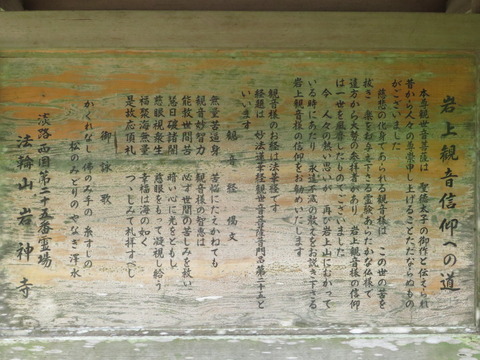 岩上観音信仰への道
本尊観世音菩薩は 聖徳太子の御作と伝えられ
昔から人々の尊崇申し上げることただならぬもの
がございました
慈悲の化身であられる観音様は この世の苦を
抜き 楽を お与え下さる霊験あらたかな仏様で
遠方から大勢の参拝者があり 岩上観音様の信仰
は一世を風靡したものでございました
今 人々の熱い思いが 再び岩上山にむかって
いる時にあたり 永遠不滅の教えをお説き下さる
岩上観音様の信仰をお勧めいたします
観音様のお経は法華経です
経題は 妙法蓮華経観世音菩薩普門品第二十五と
いいます
観音経 偈文
無量苦逼身 苦悩にたえかねても
観音妙智力 観音様の智恵は
能救世間苦 必ず世間の苦しみを救い
慧日破諸闇 暗い心に光をともし
慈眼視衆生 慈眼をもって凝視め給う
福聚海無量 幸福は海の如く
是故応頂礼 つゝしみて礼拝すべし
御詠歌
かくれなし 佛のみ手の 糸すじの
松のみどりの やなぎ澤水
淡路西国第二十五番霊場
法輪山 岩神寺